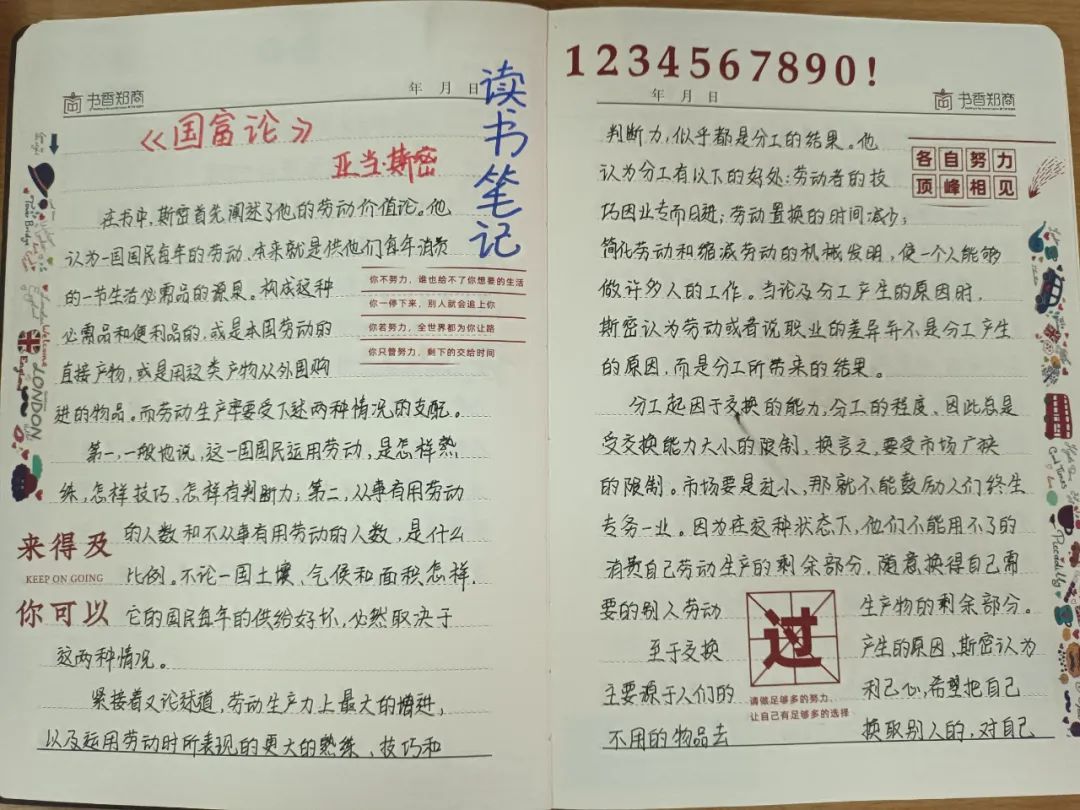 书香郑商
年 月 日
《国富论》
亚当·斯密
读书笔记
在书中,斯密首先阐述了他的劳动价值论。他
认为一国国民每年的劳动、本来就是供他们每年消费
的一节生活必需品的源泉。构成这种
必需品和便利品的,或是本国劳动的
直接产物,或是用这类产物从外国购
进的物品。而劳动生产率要受下述两种情况的支配。
你不努力,谁也给不了你想要的生活
你一停下来,别人就会追上你
你若努力,全世界都为你让路
你只管努力,剩下的交给时间
第一,一般地说,这一国国民运用劳动,是怎样熟
练,怎样技巧,怎样有判断力;第二,从事有用劳动
的人数和不从事有用劳动的人数,是什么
比例。不论一国土壤、气候和面积怎样,
它的国民每年的供给好坏,必然取决于
这两种情况。
来得及
KEEP ON GOING
你可以
紧接着又论述道,劳动生产力上最大的增进,
以及运用劳动时所表现的更大的熟练、技巧和
LONDON
England
1234567890!
年 月 日
书香郑商
各自努力
顶峰相见
判断力,似乎都是分工的结果。他
认为分工有以下的好处:劳动者的技
巧因业专而日进;劳动置换的时间减少;
简化劳动和缩减劳动的机械发明,使一个人能够
做许多人的工作。当论及分工产生的原因时,
斯密认为劳动或者说职业的差异并不是分工产生
的原因,而是分工所带来的结果。
分工起因于交换的能力,分工的程度、因此总是
受交换能力大小的限制,换言之,要受市场广狭
的限制。市场要是过小,那就不能鼓励人们终生
专务一业。因为在这种状态下,他们不能用不了的
消费自己劳动生产的剩余部分,随意换得自己需
要的别人劳动 生产物的剩余部分。
至于交换 产生的原因、斯密认为
主要源于人们的 利己心,希望把自己
不用的物品去 换取别人的,对自己
过
请做足够多的努力
让自己有足够多的选择
Piccadilly